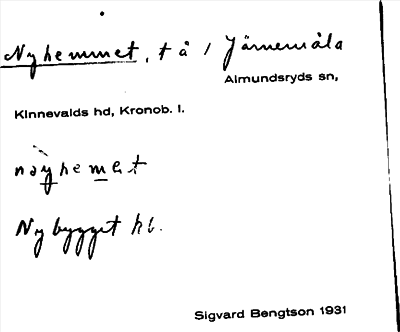 Nyhemmet, t å 1 Järnemåla
Almundsryds sn,
Kinnevalds hd, Kronob. l.
nøyhemet
Nybygget hb.
Sigvard Bengtson 1931